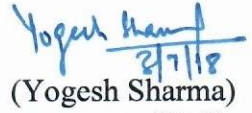 Yogesh Sharma
3/7/18
(Yogesh Sharma)